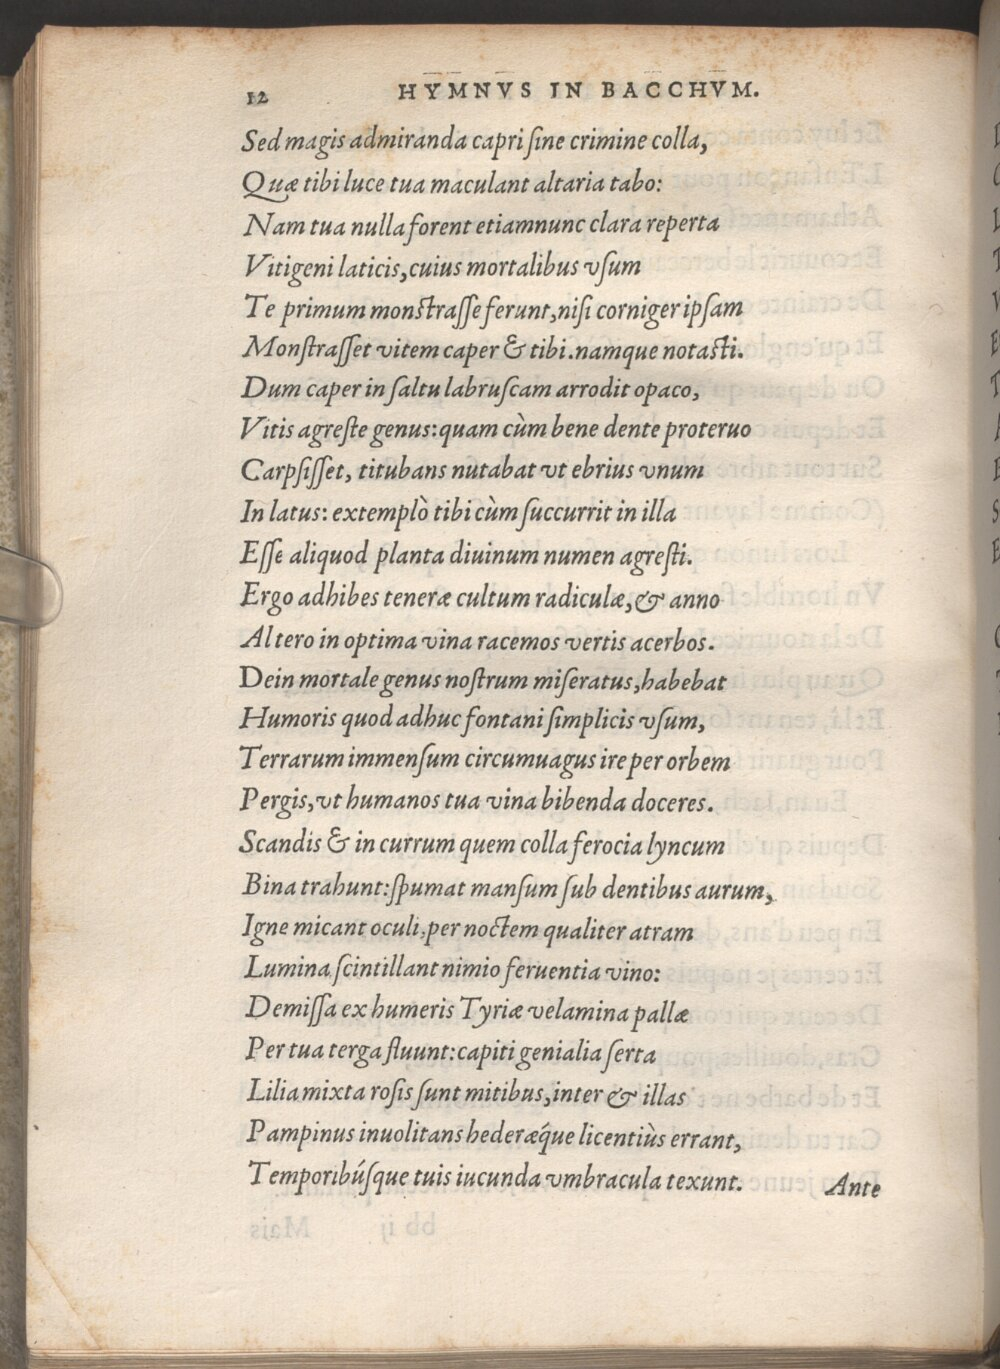 12 HYMNVS IN BACCHVM.
Sed magis admiranda capri ſine crimine colla,
Quæ tibi luce tua maculant altaria tabo:
Nam tua nulla forent etiamnunc clara reperta
Vitigeni laticis, cuius mortalibus vſum
Te primum monſtraſſe ferunt, niſi corniger ipſam
Monſtraſſet vitem caper & tibi. namque notaſti.
Dum caper in ſaltu labruſcam arrodit opaco,
Vitis agreſte genus: quam cùm bene dente proteruo
Carpſiſſet, titubans nutabat vt ebrius vnum
In latus: extemplò tibi cùm ſuccurrit in illa
Eſſe aliquod planta diuinum numen agreſti.
Ergo adhibes teneræ cultum radiculæ, & anno
Altero in optima vina racemos vertis acerbos.
Dein mortale genus noſtrum miſeratus, habebat
Humoris quod adhuc fontani ſimplicis vſum,
Terrarum immenſum circumuagus ire per orbem
Pergis, vt humanos tua vina bibenda doceres.
Scandis & in currum quem colla ferocia lyncum
Bina trahunt: ſpumat manſum ſub dentibus aurum,
Igne micant oculi, per noctem qualiter atram
Lumina ſcintillant nimio feruentia vino:
Demiſſa ex humeris Tyriæ velamina pallæ
Per tua terga fluunt: capiti genialia ſerta
Lilia mixta roſis ſunt mitibus, inter & illas
Pampinus inuolitans hederæq́ue licentiùs errant,
Temporibúſque tuis iucunda vmbracula texunt.
Ante
bb ij
Mais